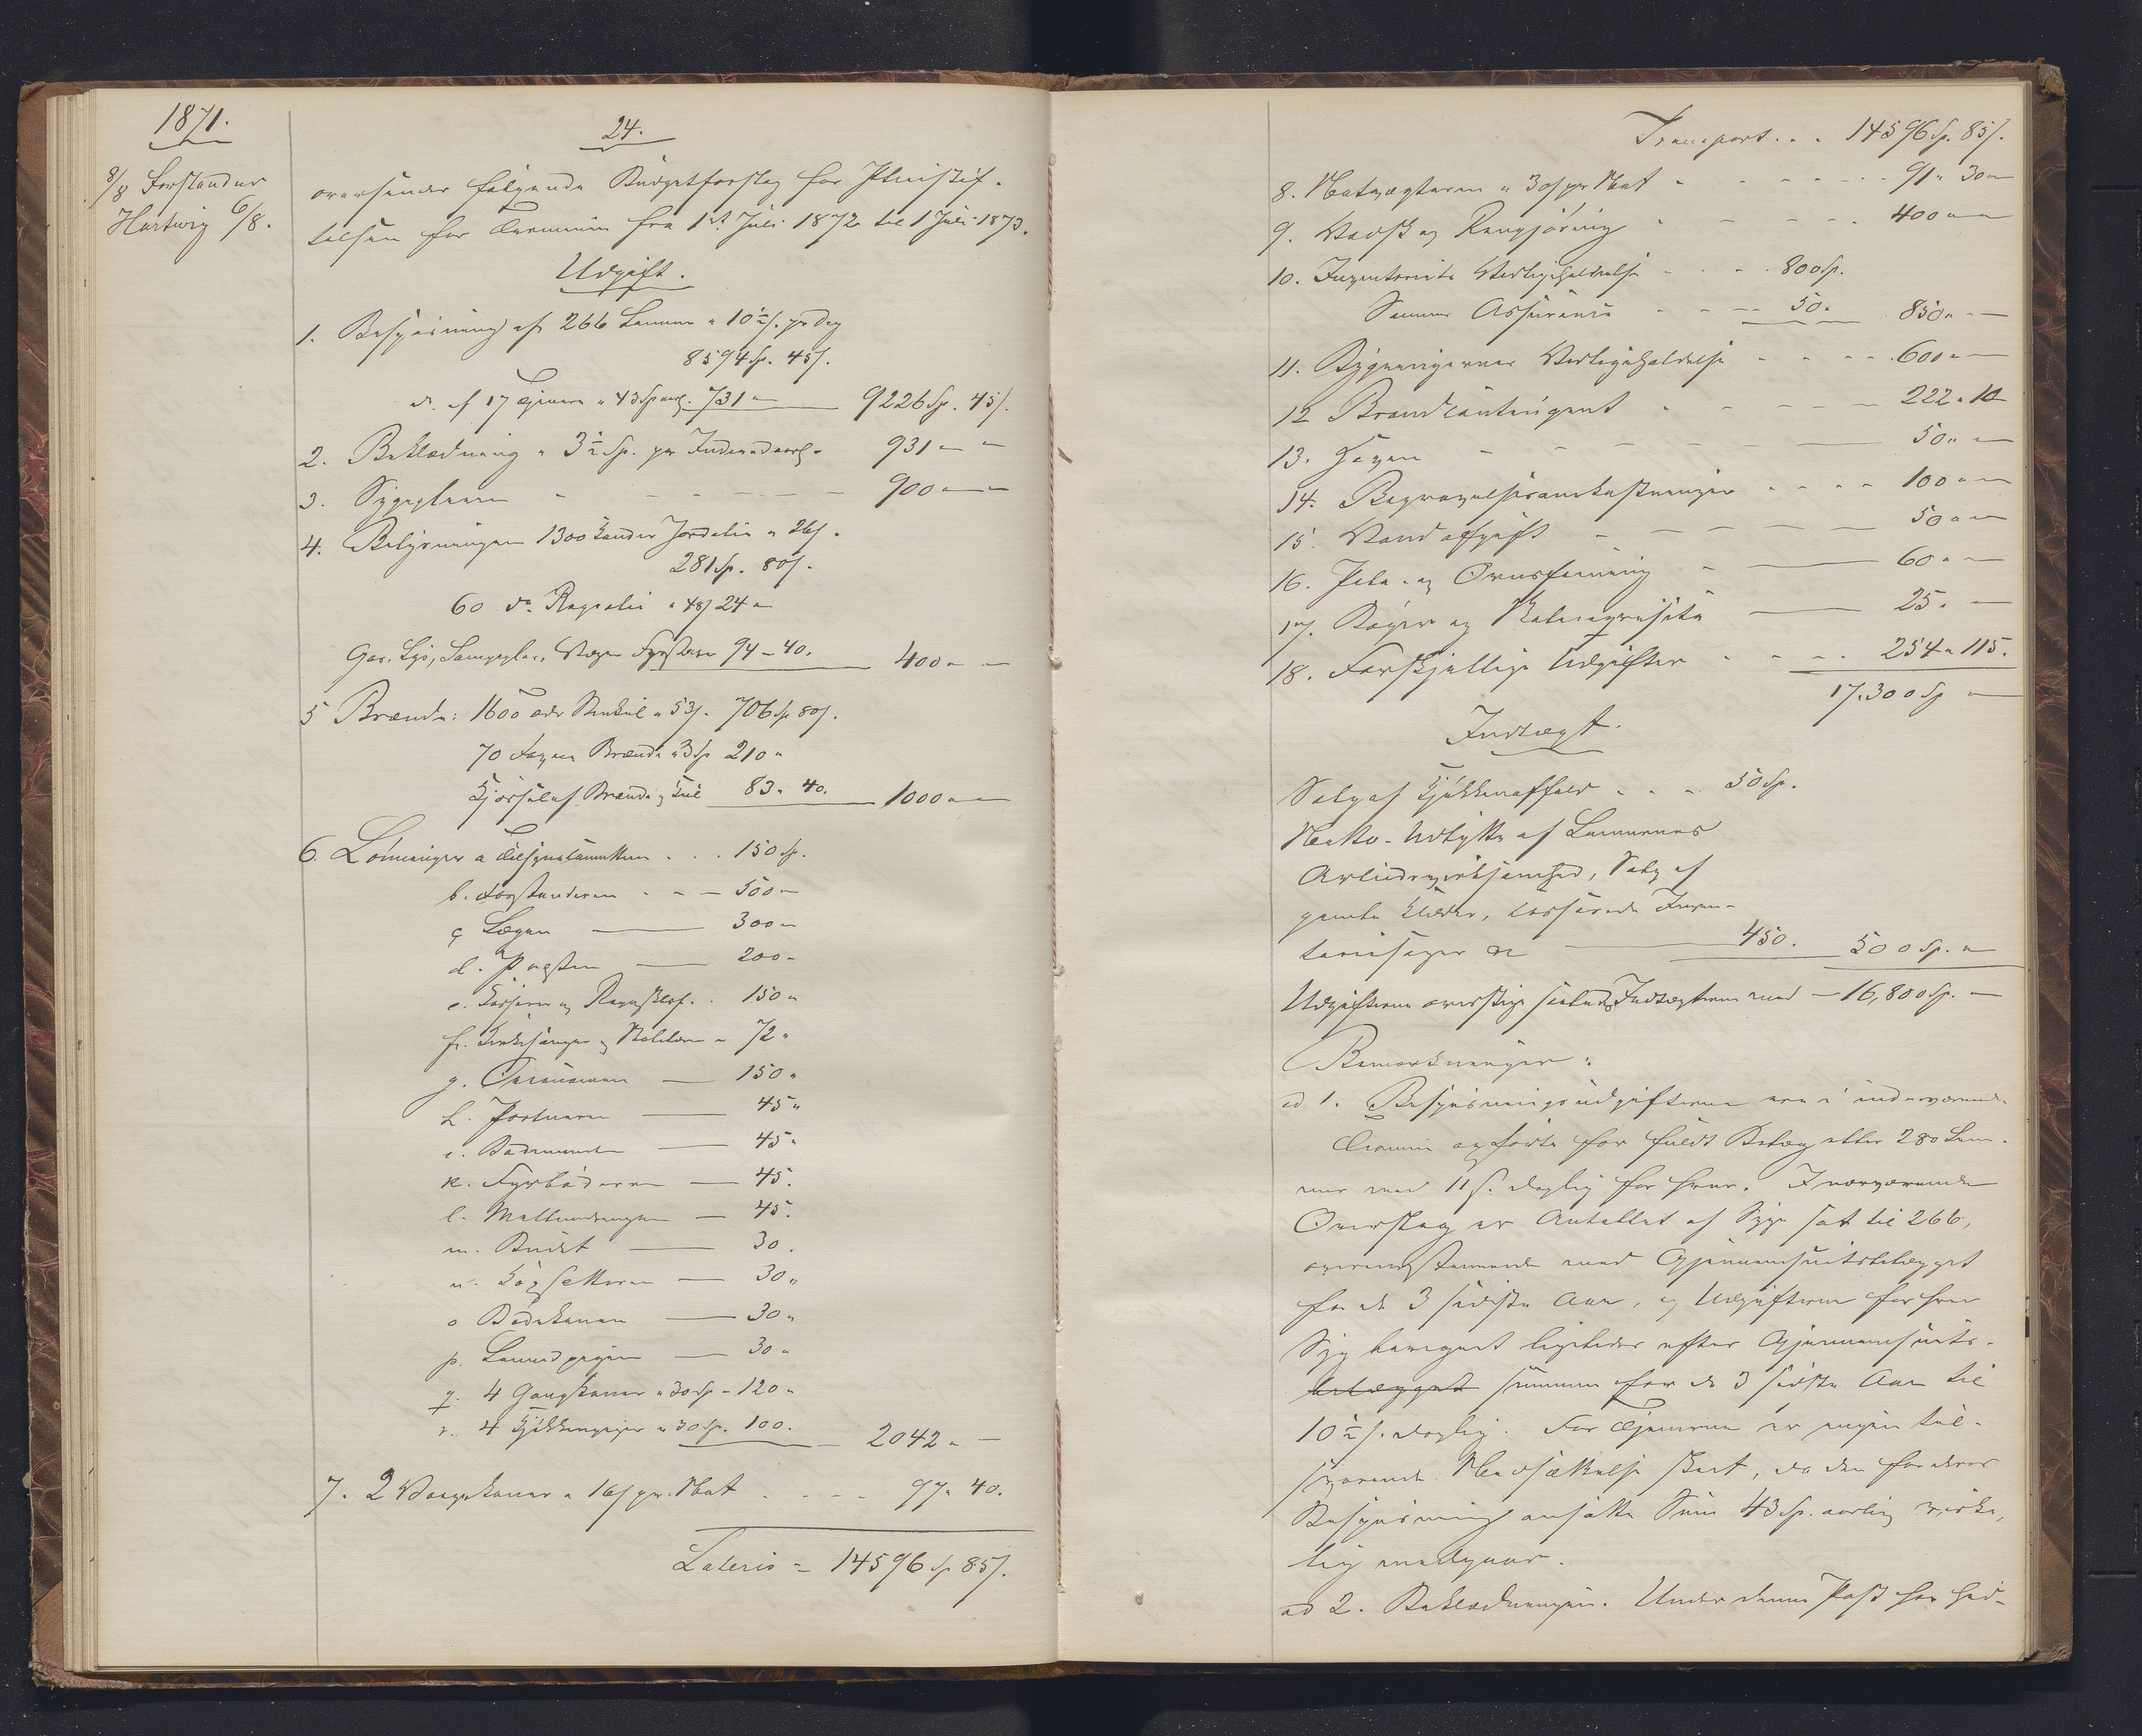 1871.
24.
8/8 Forstander
Hartwig 6/8.
oversender følgende Budgetforslag for Pleiestif-
telsen for Terminen fra 1st Juli 1872 til 1 Juli 1873.
Udgift.
1. Bespisning af 266 Lemmer a 10½ s. pr Dag
8594 Sp. 45 s.
do. af 17 Tjenere a 43 Sp aarl. 731 " 9226 Sp. 45 s.
2. Beklædning a 3½ Sp. pr Individ aarl. 931 " "
3. Sygepleien - - - - 900 " "
4. Belysningen 1300 Kander Jordolie a 26 s.
281 Sp. 80 s.
60 do. Rapsolie a 48 s 24 "
Gas, Lys, Lampeglas, Væger Fyrstikker 94 - 40. 400 " "
5 Brænde: 1600 Tdr Stenkul a 53 s. 706 Sp 80 s.
70 Favne Brænde a 3 Sp 210 "
Kjørsel af Brænde og Kul 83 " 40. 1000 " "
6. Lønninger a Tilsynskomiteen . . . 150 Sp.
b. Forstanderen - - 500 "
c Lægen — 300 "
d. Præsten — 200 "
e. Kasserer og Regnskabsf. . 150 "
f. Kirkesanger og 72 "
g. Oeconomen — 150 "
h. Portneren — 45 "
i. Bademanden — 45 "
k. Fyrbøderen — 45.
l. — 45.
m. Budet — 30.
n. — 30 "
o Badekonen — 30 "
p. — 30 "
q. 4 Gangkoner a 30 Sp - 120 "
r. 4 Kjøkkenpiger a 30 Sp. 100. 2042 " —
7. 2 Vaagekoner a 16 s pr. Nat . . . . 97 " 40.
Lateris = 14596 Sp 85 s.
Transport . . . 14596 Sp. 85 s.
8. Natvægteren a 30 s pr Nat - - - - 91 " 30 "
9. Vadsk og Rengjøring - - - - 400 " "
10. Inventariets Vedligeholdelse - - - 800 Sp.
Samme Assurance - - - 50 " 850 " "
11. Bygningernes Vedligeholdelse - - - 600 " —
12 Brandcontingent - - - - 222 " 10
13. Haven - - - - 50 " "
14. Begravelsesomkostninger - - - - 100 " "
15. Vandafgift - - - - 50 " "
16. Pibe- og Ovnsfeining - — 60 " —
17. Bøger og — 25 " —
18. Forskjellige Udgifter - - - - 254 " 115.
17.300 Sp "
Indtægt.
Salg af Kjøkkenaffald - - - 50 Sp.
Netto-Udbytte af Lemmernes
Arbeidsvirksomhed, Salg af
gamle Klæder, kasserede Inven-
tariesager &c — 450. 500 Sp. "
Udgifterne overstige saaledes Indtægterne med — 16,800 Sp. —
Bemærkninger:
ad 1. Bespisningsudgifterne ere i indeværende
Termin opførte for fuldt Belæg eller 280 Lem-
mer med 11 s. daglig for hver. I nærværende
Overslag er Antallet af Syge sat til 266,
overensstemmende med Gjennemsnitsbelægget
for de 3 sidste Aar, og Udgifterne for hver
Syg beregnet ligeledes efter Gjennemsnits-
belægget summen for de 3 sidste Aar til
10½ s. daglig. For Tjenerne er ingen til-
svarende Nedsættelse skeet, da den for deres
Bespisning ansatte Sum 43 Sp. aarlig virke-
lig medgaar.
ad 2. Beklædningen. Under denne Post har hid-